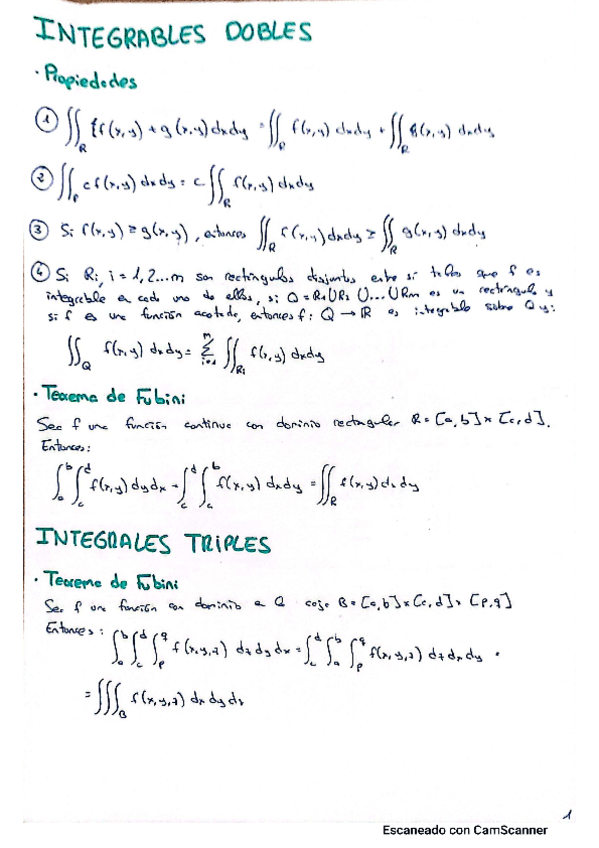 INTEGRABLES DOBLES
· Propiedades
① ∬_R [f(x,y) + g(x,y) dxdy = ∬_R f(x,y) dxdy + ∬_R g(x,y) dxdy
② ∬_R c f(x,y) dxdy = c ∬_R f(x,y) dxdy
③ Si f(x,y) ≥ g(x,y), entonces ∬_R f(x,y) dxdy ≥ ∬_R g(x,y) dxdy
④ Si Ri, i = 1,2...m son rectángulos disjuntos entre sí tales que f es
integrable en cada uno de ellos, si Q = R1 ∪ R2 ∪ ... ∪ Rm es un rectángulo y
si f es una función acotada, entonces f: Q → ℝ es integrable sobre Q y:
∬_Q f(x,y) dxdy = ∑_{i=1}^{m} ∬_{Ri} f(x,y) dxdy
· Teorema de Fubini
Sea f una función continua con dominio rectangular R = [a,b] × [c,d].
Entonces:
∫_a^b ∫_c^d f(x,y) dy dx = ∫_c^d ∫_a^b f(x,y) dx dy = ∬_R f(x,y) dx dy
INTEGRALES TRIPLES
· Teorema de Fubini
Sea f una función con dominio a Q caja B = [a,b] × [c,d] × [p,q]
Entonces: ∫_a^b ∫_c^d ∫_p^q f(x,y,z) dz dy dx = ∫_c^d ∫_a^b ∫_p^q f(x,y,z) dz dx dy =
= ∭_B f(x,y,z) dx dy dz
1
Escaneado con CamScanner